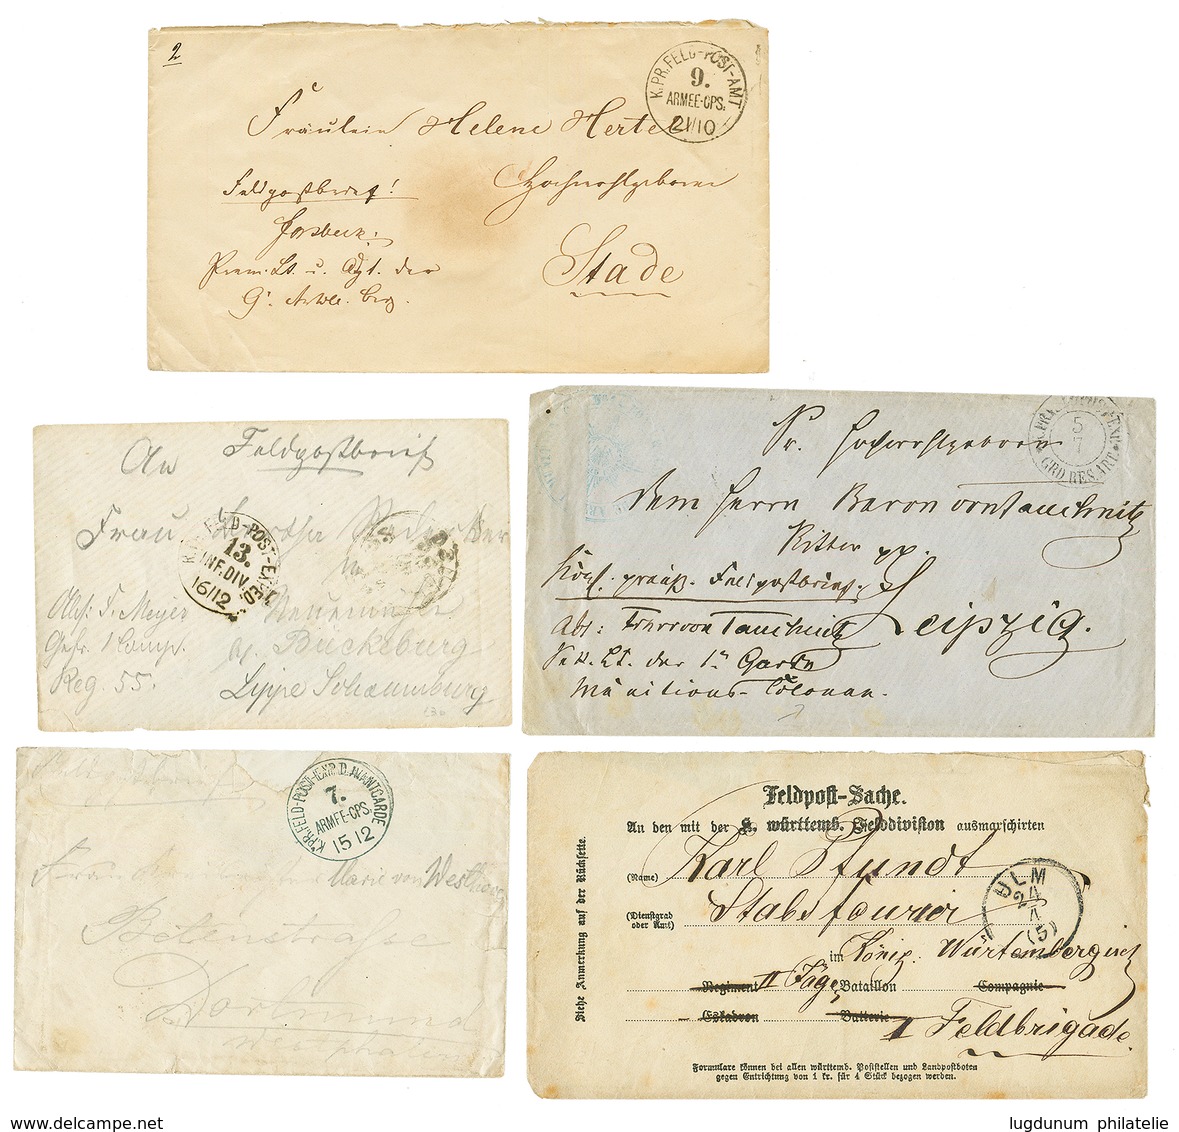 2
K.PR.FELD-POST-AMT
9.
ARMEE-CPS.
21/10
Fräulein Helene Hertel
Hochwohlgeboren
Feldpostbrief!
Stade
Prem. Lt. u. Adjt. der
An Feldpostbrief
Frau
FELD-POST-EXPED.
13.
INF.DIV.
16/12
Abs: F. Meyer
Gefr. Comp.
Reg. 55.
Bückeburg
Lippe Schaumburg
5
7
GRD RES. ART.
Sr. Hochwohlgeboren
dem Herrn Baron von Tauchnitz
Ritter pp.
Königl. preuß. Feldpostbrief.
Leipzig.
Abs: Freiherr von Tauchnitz
Sek. Lt. der 1n Garde
Munitions-Colonne.
K.PR.FELD-POST-EXP. D. AVANTGARDE
7.
ARMEE-CPS.
15 12
Frau Marie von Westhoven
Dortmund
Feldpost-Sache.
An den mit der K. württemb. Felddivision ausmarschirten
(Name) Karl Pfundt
(Dienstgrad oder Amt) Stabsfourier
im König. Würtembergisch
Regiment II Jäger Bataillon Compagnie
Eskadron Batterie I Feldbrigade.
Siehe Anmerkung auf der Rückseite.
ULM
24
4
(5)
Formulare können bei allen württemb. Poststellen und Landpostboten
gegen Entrichtung von 1 kr. für 4 Stück bezogen werden.
www.delcampe.net
lugdunum philatelie